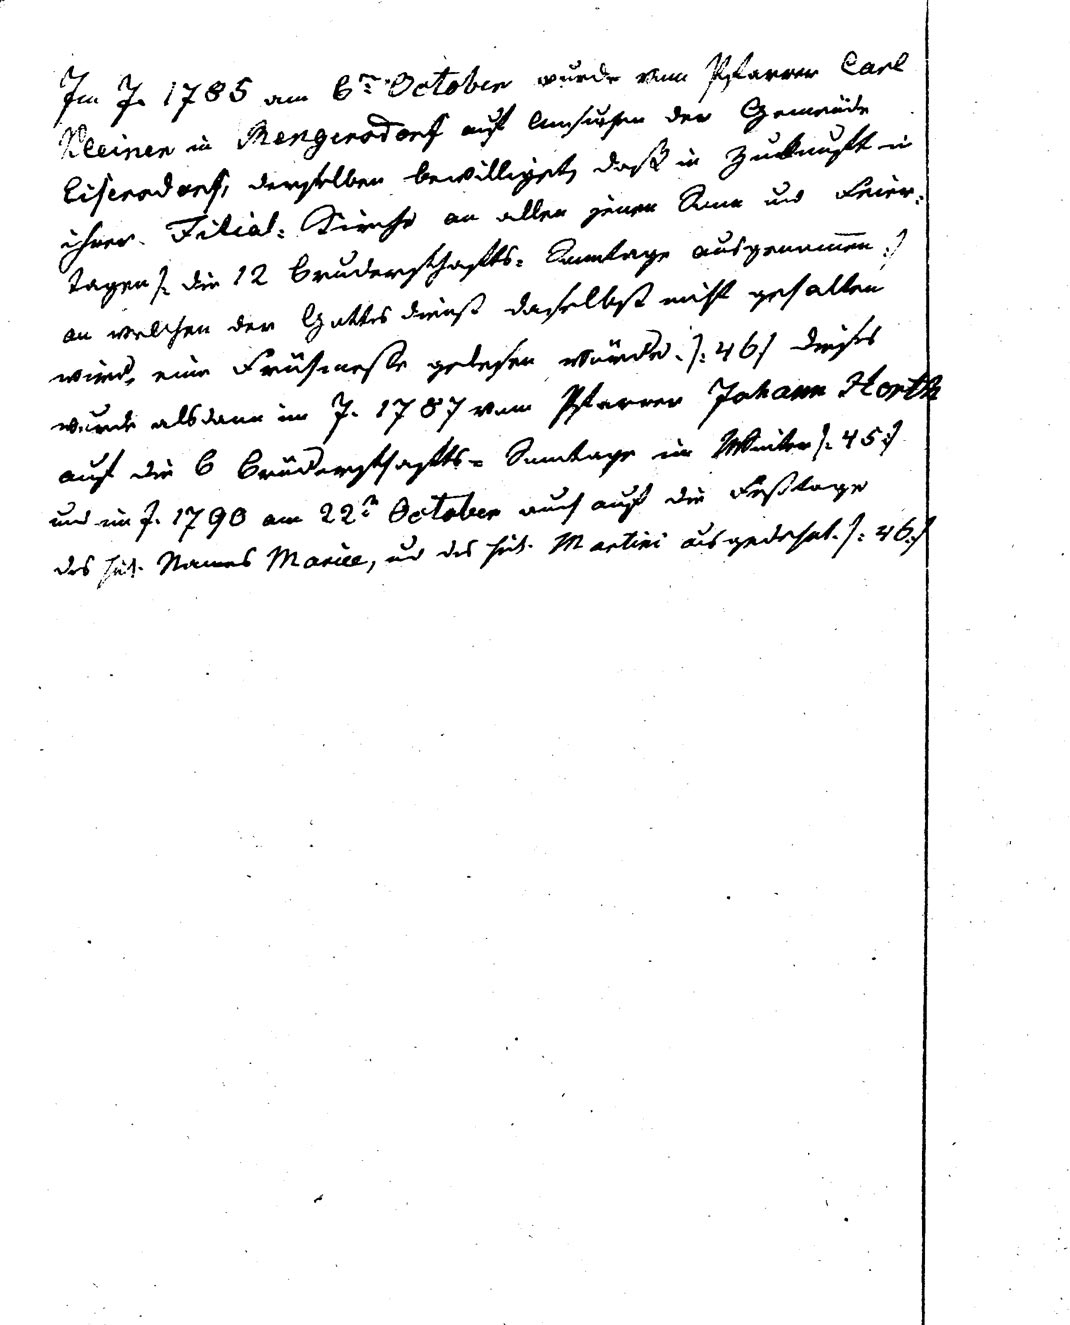 Im J. 1785 am 6tn October wurde vom Pfarrer Carl
Kleiner in Rengersdorf auf Ansuchen der Gemeinde
Eisersdorf, derselben bewilliget, daß in Zukunft in
ihrer Filial-Kirche an allen jenen Sonn und Feier-
tagen /: die 12 Bruderschafts-Sonntage ausgenommen :/
an welchen der Gottesdienst daselbst nicht gehalten
wird, eine Frühmesse gelesen würde. /: 46 :/ Dieses
wurde alsdann im J. 1787 vom Pfarrer Johann Horth
auf die 6 Bruderschafts-Sonntage im Winter /: 45 :/
und im J. 1790 am 22tn October auch auf die Festtage
des heil. Namens Mariæ, und des heil. Martini ausgedehnt. /: 46 :/